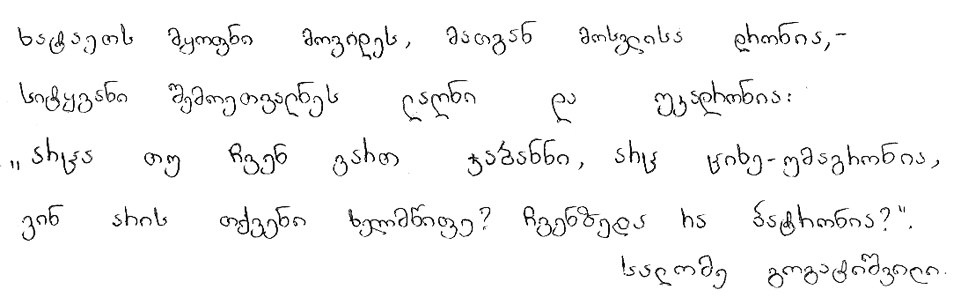 ხატაეთს მყოფნი მოვიდეს, მათგან მოსვლისა დრონია,-
სიტყვანი შემოეთვალნეს ლაღნი და უკადრონია:
„არცა თუ ჩვენ ვართ ჯაბანნი, არც ციხე-უმაგრონია,
ვინ არის თქვენი ხელმწიფე? ჩვენზედა რა პატრონია?".
სალომე გოგატიშვილი.